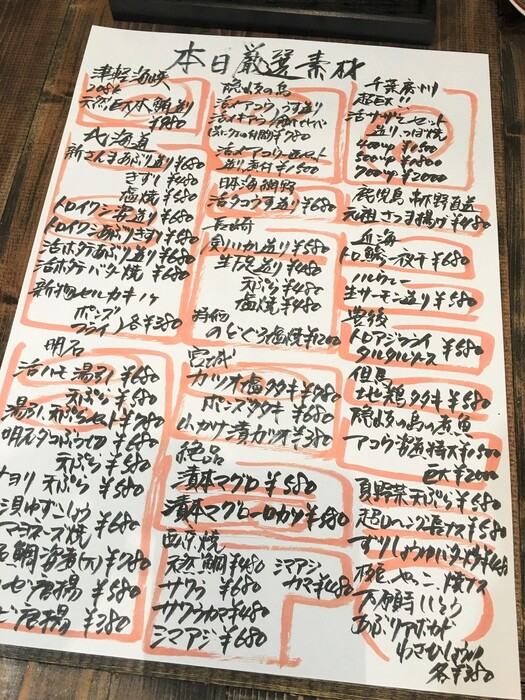 本日厳選素材
津軽海峡
天然巨大本鮪造り
¥980
北海道
新さんまあぶり造り ¥680
きずし ¥480
塩焼 ¥580
トロイワシ造り ¥680
トロイワシあぶりきずし ¥680
活ホタテあぶり造り ¥680
活ホタテバター焼 ¥680
新物セルカキ
ポンズ
フライ 各¥380
明石
活ハモ湯引 ¥680
天ぷら ¥580
湯引、天ぷらセット ¥980
明石ダコぶつ切 ¥680
天ぷら ¥580
サヨリ天ぷら ¥580
貝ゆずこしょう ¥680
マヨネーズ焼 ¥680
鯛海老(大) ¥980
唐揚 ¥580
唐揚 ¥380
隠岐の島
活アコウうす造り
活アコウ一匹セット
造り、煮付 ¥1500
日本海網野
活タコうす造り ¥680
長崎
剣いか造り ¥580
生げそ造り ¥480
天ぷら ¥480
塩焼 ¥480
のどぐろ塩焼 ¥1200
宮城
カツオ塩タタキ ¥980
ポンズタタキ ¥980
山かけ漬カツオ ¥380
絶品
漬本マグロ ¥580
漬本マグロ一口カツ ¥580
西京焼
天然鯛 ¥480
サワラ ¥680
サワラカマ ¥480
シマアジ ¥680
シマアジ
カマ ¥480
千葉
超巨大!!
活サザエセット
造り、つぼ焼
400up ¥1500
500up ¥1800
700up ¥2000
鹿児島 串木野直送
元祖さつま揚げ ¥480
近海
トロ鯵一夜干 ¥680
ノルウェー
生サーモン造り ¥580
豊後
トロアジフライ
タルタルソース ¥580
但馬
地鶏タタキ ¥580
隠岐の島の煮魚
アコウ 特大 ¥1500
巨大 ¥2000
夏野菜天ぷら ¥580
超ロング長ナス ¥580
ずりしょうゆバター炒 ¥48
枝豆 やっこ 焼ナス
あぶりアボカド
わさびしょうゆ
各 ¥380